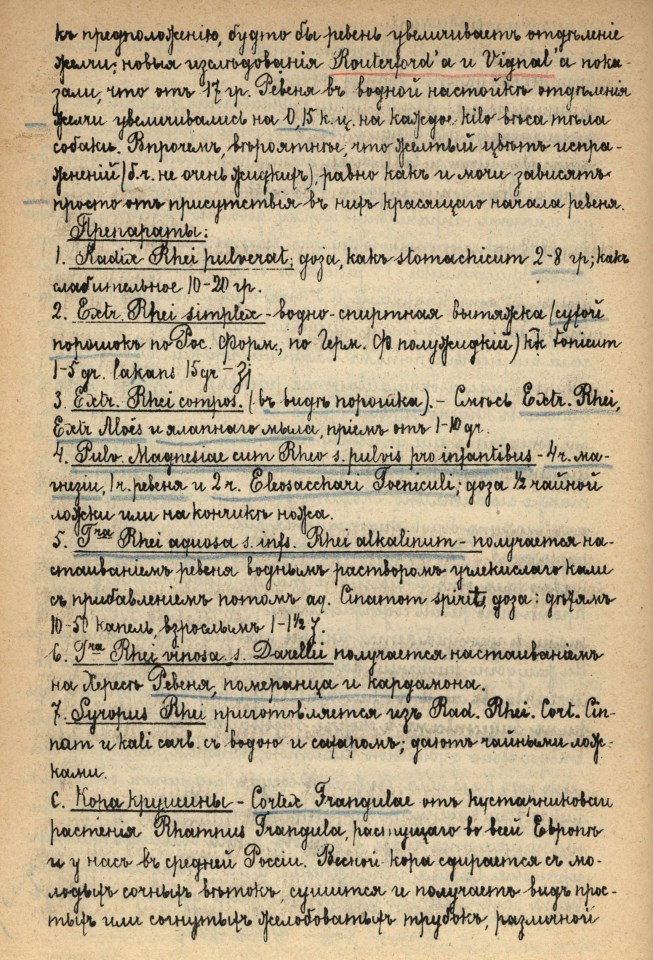 къ предположенію, будто бы ревень увеличиваетъ отдѣленіе
желчи; новыя изслѣдованія Routerford'а и Vignal'а пока-
зали, что отъ 17 гр. Ревеня въ водной настойкѣ отдѣленія
желчи увеличивались на 0,15 к. ц. на каждое kilo вѣса тѣла
собаки. Впрочемъ, вѣроятнѣе, что желтый цвѣтъ испра-
жненій (б. ч. не очень жидкихъ), равно какъ и мочи зависятъ
просто отъ присутствія въ нихъ красящаго начала ревеня.
Препараты:
1. Radix Rhei pulverat; доза, какъ stomachicum 2-8 гр; какъ
слабительное 10-20 гр.
2. Extr. Rhei simplex - водно-спиртная вытяжка (сухой
порошокъ по Рос. Форм., по Герм. Ф полужидкій) как tonicum
1-5 gr. laxans 15 gr - ʒj
3. Extr. Rhei compos. (въ видѣ порошка). - Смѣсь Extr. Rhei,
Extr Aloës и ялаппнаго мыла, пріемъ отъ 1-10 gr.
4. Pulv. Magnesiae cum Rheo s. pulvis pro infantibus - 4 ч. ма-
гнезіи, 1 ч. ревеня и 2 ч. Eleosacchari Foeniculi; доза ½ чайной
ложки или на кончикѣ ножа.
5. Tra Rhei aquosa s. infs. Rhei alkalinum - получается на-
стаиваніемъ ревеня воднымъ растворомъ углекислаго кали
съ прибавленіемъ потомъ aq. Cinamom spirit; доза: дѣтямъ
10-50 капель, взрослымъ 1-1½ ʒ.
6. Tra Rhei vinosa s. Darellii получается настаиваніемъ
на Хересѣ Ревеня, померанца и кардамона.
7. Syropus Rhei приготовляется изъ Rad. Rhei. Cort. Cin-
nam и kali carb. съ водою и сахаромъ; даютъ чайными лож-
ками.
С. Кора крушины - Cortex Frangulae отъ кустарниковаго
растенія Rhamnus Frangula, растущаго во всей Европѣ
и у насъ въ средней Россіи. Весной кора сдирается съ мо-
лодыхъ сочныхъ вѣтокъ, сушится и получаетъ видъ прос-
тыхъ или согнутыхъ желобоватыхъ трубокъ, различной